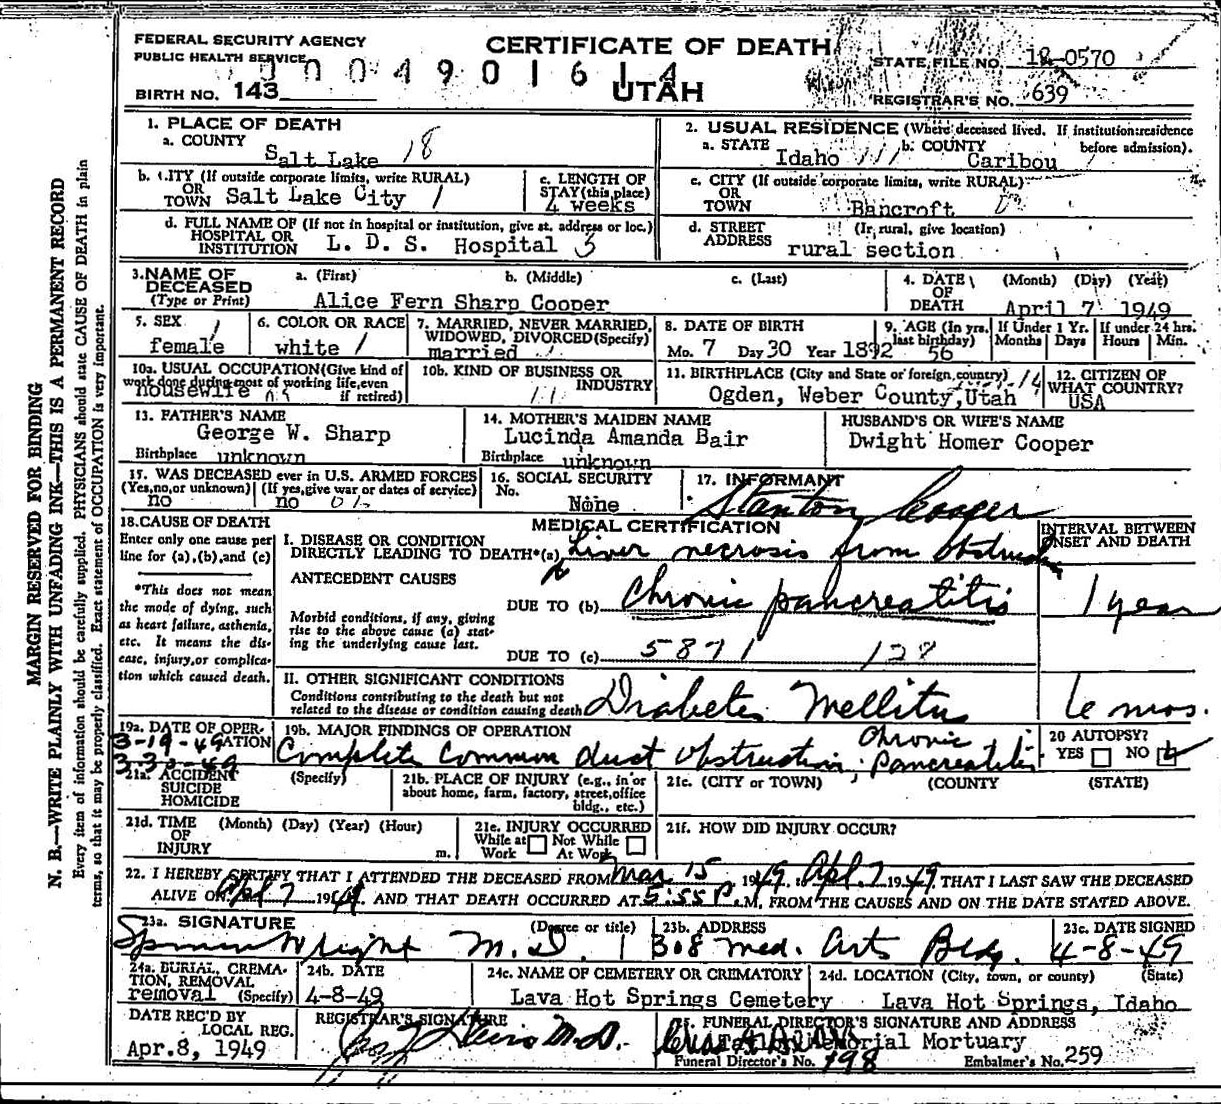 FEDERAL SECURITY AGENCY
PUBLIC HEALTH SERVICE
CERTIFICATE OF DEATH
UTAH
004901614
STATE FILE NO. 18-0570
BIRTH NO. 143
REGISTRAR'S NO. 639
MARGIN RESERVED FOR BINDING
N. B.—WRITE PLAINLY WITH UNFADING INK—THIS IS A PERMANENT RECORD
Every item of information should be carefully supplied. PHYSICIANS should state CAUSE OF DEATH in plain
terms, so that it may be properly classified. Exact statement of OCCUPATION is very important.
1. PLACE OF DEATH
a. COUNTY
Salt Lake 18
2. USUAL RESIDENCE (Where deceased lived. If institution:residence
before admission).
a. STATE Idaho b. COUNTY Caribou
b. CITY (If outside corporate limits, write RURAL)
OR
TOWN Salt Lake City 1
c. LENGTH OF
STAY (this place)
4 weeks
c. CITY (If outside corporate limits, write RURAL)
OR
TOWN Bancroft
d. FULL NAME OF (If not in hospital or institution, give st. address or loc.)
HOSPITAL OR
INSTITUTION L. D. S. Hospital 3
d. STREET (If rural, give location)
ADDRESS rural section
3. NAME OF
DECEASED
(Type or Print)
a. (First) b. (Middle) c. (Last)
Alice Fern Sharp Cooper
4. DATE
OF
DEATH
(Month) (Day) (Year)
April 7 1949
5. SEX
female
6. COLOR OR RACE
white
7. MARRIED, NEVER MARRIED,
WIDOWED, DIVORCED (Specify)
married
8. DATE OF BIRTH
Mo. 7 Day 30 Year 1892
9. AGE (In yrs.
last birthday)
56
If Under 1 Yr.
Months Days
If under 24 hrs.
Hours Min.
10a. USUAL OCCUPATION (Give kind of
work done during most of working life, even
if retired)
housewife
10b. KIND OF BUSINESS OR
INDUSTRY
11. BIRTHPLACE (City and State or foreign country)
Ogden, Weber County, Utah
12. CITIZEN OF
WHAT COUNTRY?
USA
13. FATHER'S NAME
George W. Sharp
Birthplace unknown
14. MOTHER'S MAIDEN NAME
Lucinda Amanda Bair
Birthplace unknown
HUSBAND'S OR WIFE'S NAME
Dwight Homer Cooper
15. WAS DECEASED ever in U.S. ARMED FORCES
(Yes, no, or unknown) (If yes, give war or dates of service)
no no
16. SOCIAL SECURITY
No. None
17. INFORMANT
Stanton Cooper
18. CAUSE OF DEATH
Enter only one cause per
line for (a), (b), and (c)
*This does not mean
the mode of dying, such
as heart failure, asthenia,
etc. It means the dis-
ease, injury, or complica-
tion which caused death.
MEDICAL CERTIFICATION
INTERVAL BETWEEN
ONSET AND DEATH
I. DISEASE OR CONDITION
DIRECTLY LEADING TO DEATH*(a) Liver necrosis from obstruction
ANTECEDENT CAUSES
DUE TO (b) Chronic pancreatitis 1 year
Morbid conditions, if any, giving
rise to the above cause (a) stat-
ing the underlying cause last.
DUE TO (c) 5871 128
II. OTHER SIGNIFICANT CONDITIONS
Conditions contributing to the death but not
related to the disease or condition causing death Diabetes Mellitus 6 mos.
19a. DATE OF OPER-
ATION
3-19-49
3-30-49
19b. MAJOR FINDINGS OF OPERATION
Complete common duct obstruction; Chronic Pancreatitis
20 AUTOPSY?
YES NO
21a. ACCIDENT
SUICIDE
HOMICIDE
(Specify)
21b. PLACE OF INJURY (e.g., in or
about home, farm, factory, street, office
bldg., etc.)
21c. (CITY or TOWN) (COUNTY) (STATE)
21d. TIME
OF
INJURY
(Month) (Day) (Year) (Hour)
m.
21e. INJURY OCCURRED
While at Work Not While At Work
21f. HOW DID INJURY OCCUR?
22. I HEREBY CERTIFY THAT I ATTENDED THE DECEASED FROM Mar 15 1949, to Apl. 7 1949 THAT I LAST SAW THE DECEASED
ALIVE ON Apl 7 1949, AND THAT DEATH OCCURRED AT 5:55 P. M, FROM THE CAUSES AND ON THE DATE STATED ABOVE.
23a. SIGNATURE (Degree or title)
Wright M.D.
23b. ADDRESS
308 Med. Arts Bldg.
23c. DATE SIGNED
4-8-49
24a. BURIAL, CREMA-
TION, REMOVAL
removal (Specify)
24b. DATE
4-8-49
24c. NAME OF CEMETERY OR CREMATORY
Lava Hot Springs Cemetery
24d. LOCATION (City, town, or county) (State)
Lava Hot Springs, Idaho
DATE REC'D BY
LOCAL REG.
Apr.8, 1949
REGISTRAR'S SIGNATURE
M.D.
25. FUNERAL DIRECTOR'S SIGNATURE AND ADDRESS
Memorial Mortuary
Funeral Director's No. 198 Embalmer's No. 259